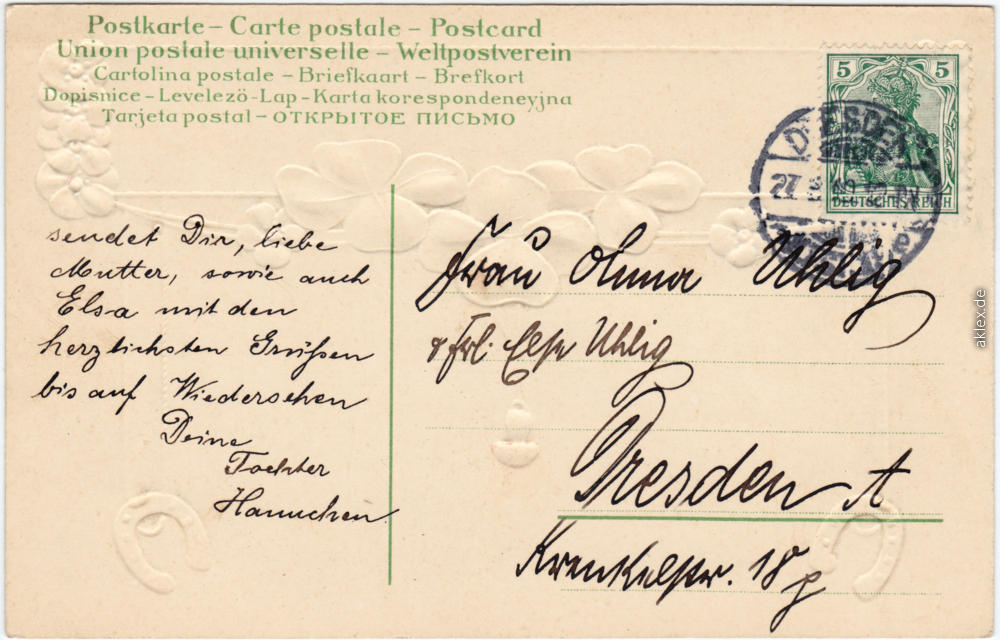 Postkarte – Carte postale – Postcard
Union postale universelle – Weltpostverein
Cartolina postale – Briefkaart – Brefkort
Dopisnice – Levelező-Lap – Karta korespondeneyjna
Tarjeta postal – ОТКРЫТОЕ ПИСЬМО
5 5
DEUTSCHES REICH
DRESDEN
27.
sendet Dir, liebe
Mutter, sowie auch
Elsa mit den
herzlichsten Grüßen
bis auf Wiedersehen
Deine
Tochter
Hannchen.
Frau Uhlig
& Frl. Else Uhlig
Dresden A
Krenkelstr. 18
aklex.de